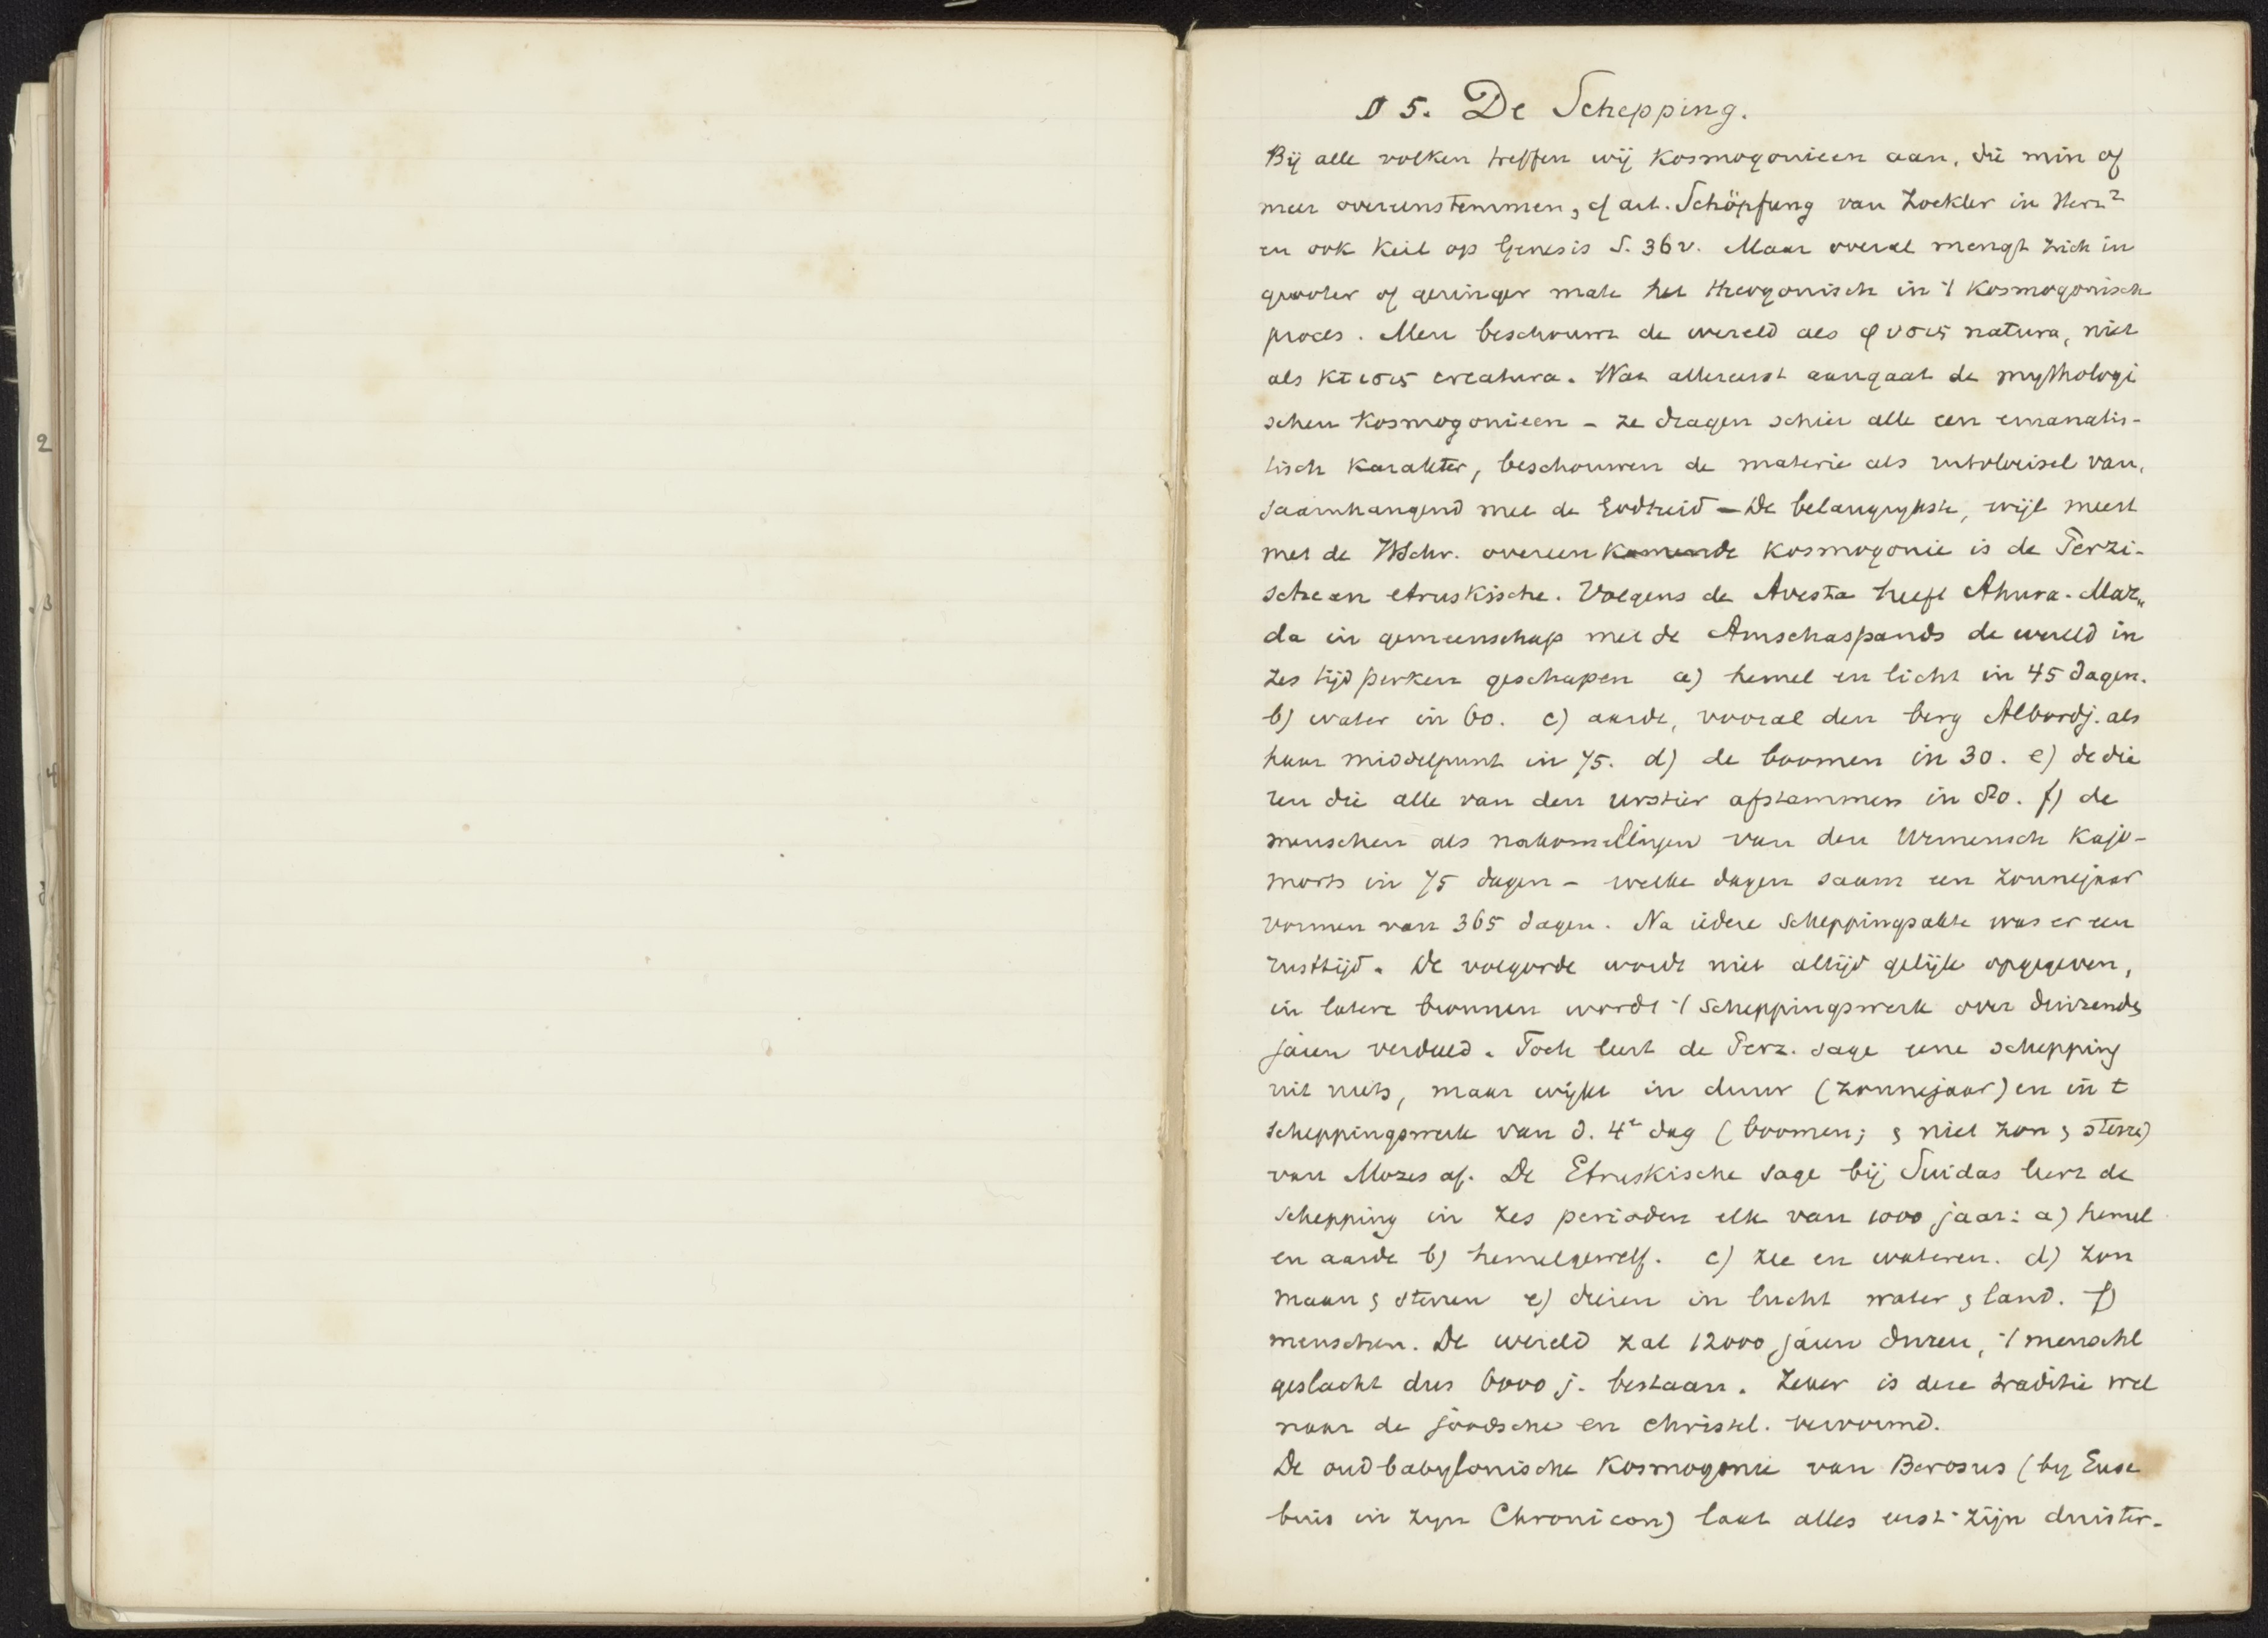 § 5. De Schepping.
Bij alle volken treffen wij Kosmogonieën aan, die min of
meer overeenstemmen, cf art. Schöpfung van Zöckler in Herz²
en ook Keil op Genesis S. 36v. Maar overal mengt zich in
grooter of geringer mate het theogonisch in 't Kosmogonisch
proces. Men beschouwt de wereld als φυσις natura, niet
als κτισις creatura. Wat allereerst aangaat de mythologi
schen Kosmogonieën – ze dragen schier alle een emanatis-
tisch karakter, beschouwen de materie als uitvloeisel van,
saamhangend met de Godheid – De belangrijkste, wijl meest
met de HSchr. overeenkomende Kosmogonie is de Perzi-
sche en etruskische. Volgens de Avesta heeft Ahura-Maz„
da in gemeenschap met de Amschaspands de wereld in
zes tijdperken geschapen a) hemel en licht in 45 dagen.
b) water in 60. c) aarde, vooral den berg Albordj. als
haar middelpunt in 75. d) de boomen in 30. e) de die
ren die alle van den urstier afstammen in 80. f) de
menschen als nakomelingen van den Urmensch Kajo-
morts in 75 dagen – welke dagen saam een zonnejaar
vormen van 365 dagen. Na iedere scheppingsakte was er een
rusttijd. De volgorde wordt niet altijd gelijk opgegeven,
in latere bronnen wordt 't scheppingswerk over duizende
jaren verdeeld. Toch leert de Perz. sage eene schepping
uit niets, maar wijkt in duur (zonnejaar) en in t
scheppingswerk van d. 4e dag (boomen; & niet zon & sterre)
van Mozes af. De Etruskische sage bij Suidas leert de
schepping in zes perioden elk van 1000 jaar: a) hemel
en aarde b) hemelgewelf. c) zee en wateren. d) zon
maan & sterren e) dieren in lucht water & land. f)
menschen. De wereld zal 12000 jaren duren, 't menschl
geslacht dus 6000 j. bestaan. Zeker is deze traditie wel
naar de joodsche en christel. vervormd.
De oudbabylonische Kosmogonie van Berosus (by Euse
bius in zyn Chronicon) laat alles eerst zijn duister-